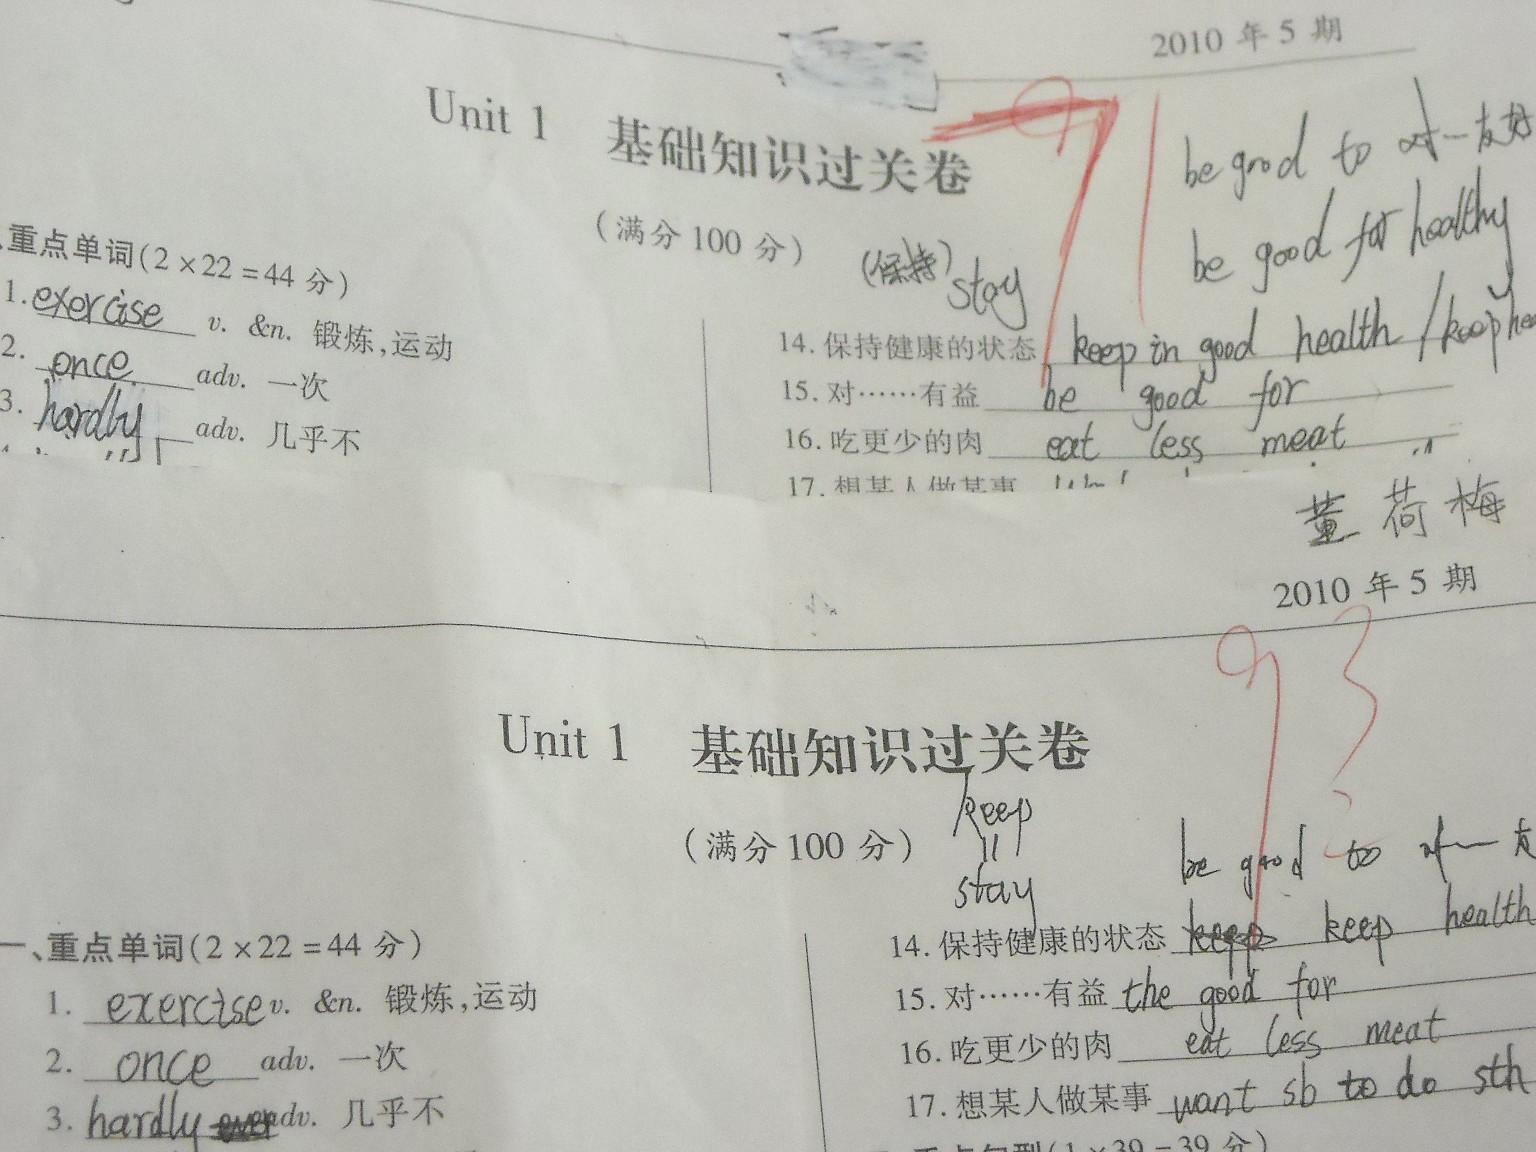 2010 年 5 期
Unit 1 基础知识过关卷
71
be good to 对一友好
(满分 100 分)
be good for healthy
(保持) stay
、重点单词(2×22=44 分)
1. exercise v. &n. 锻炼,运动
2. once adv. 一次
3. hardly adv. 几乎不
14. 保持健康的状态 keep in good health / keep hea
15. 对……有益 be good for
16. 吃更少的肉 eat less meat
17. 想某人做某事
董荷梅
2010 年 5 期
93
Unit 1 基础知识过关卷
(满分 100 分)
keep
=
stay
be good to 对一友
一、重点单词(2×22=44 分)
1. exercise v. &n. 锻炼,运动
2. once adv. 一次
3. hardly adv. 几乎不
14. 保持健康的状态 keep health
15. 对……有益 the good for
16. 吃更少的肉 eat less meat
17. 想某人做某事 want sb to do sth
重点句型(1×39=39 分)